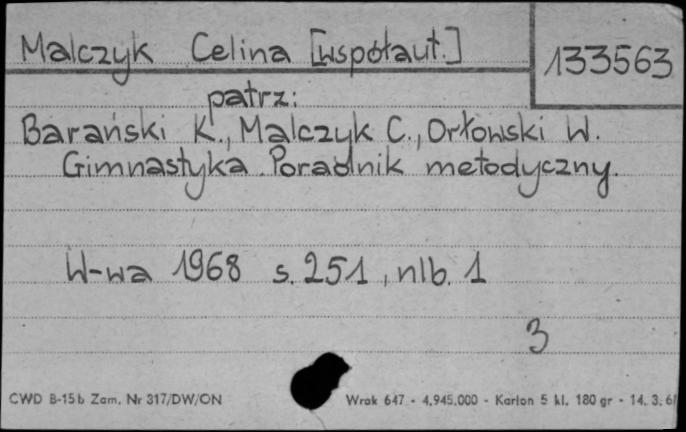 Malczyk Celina [współaut.]
133563
patrz:
Barański K., Malczyk C., Orłowski W.
Gimnastyka. Poradnik metodyczny.
W-wa 1968 s. 251, nlb. 1
3
CWD B-15b Zam. Nr 317/DW/ON Wrok 647 - 4.945.000 - Karton 5 kl. 180 gr - 14. 3. 6